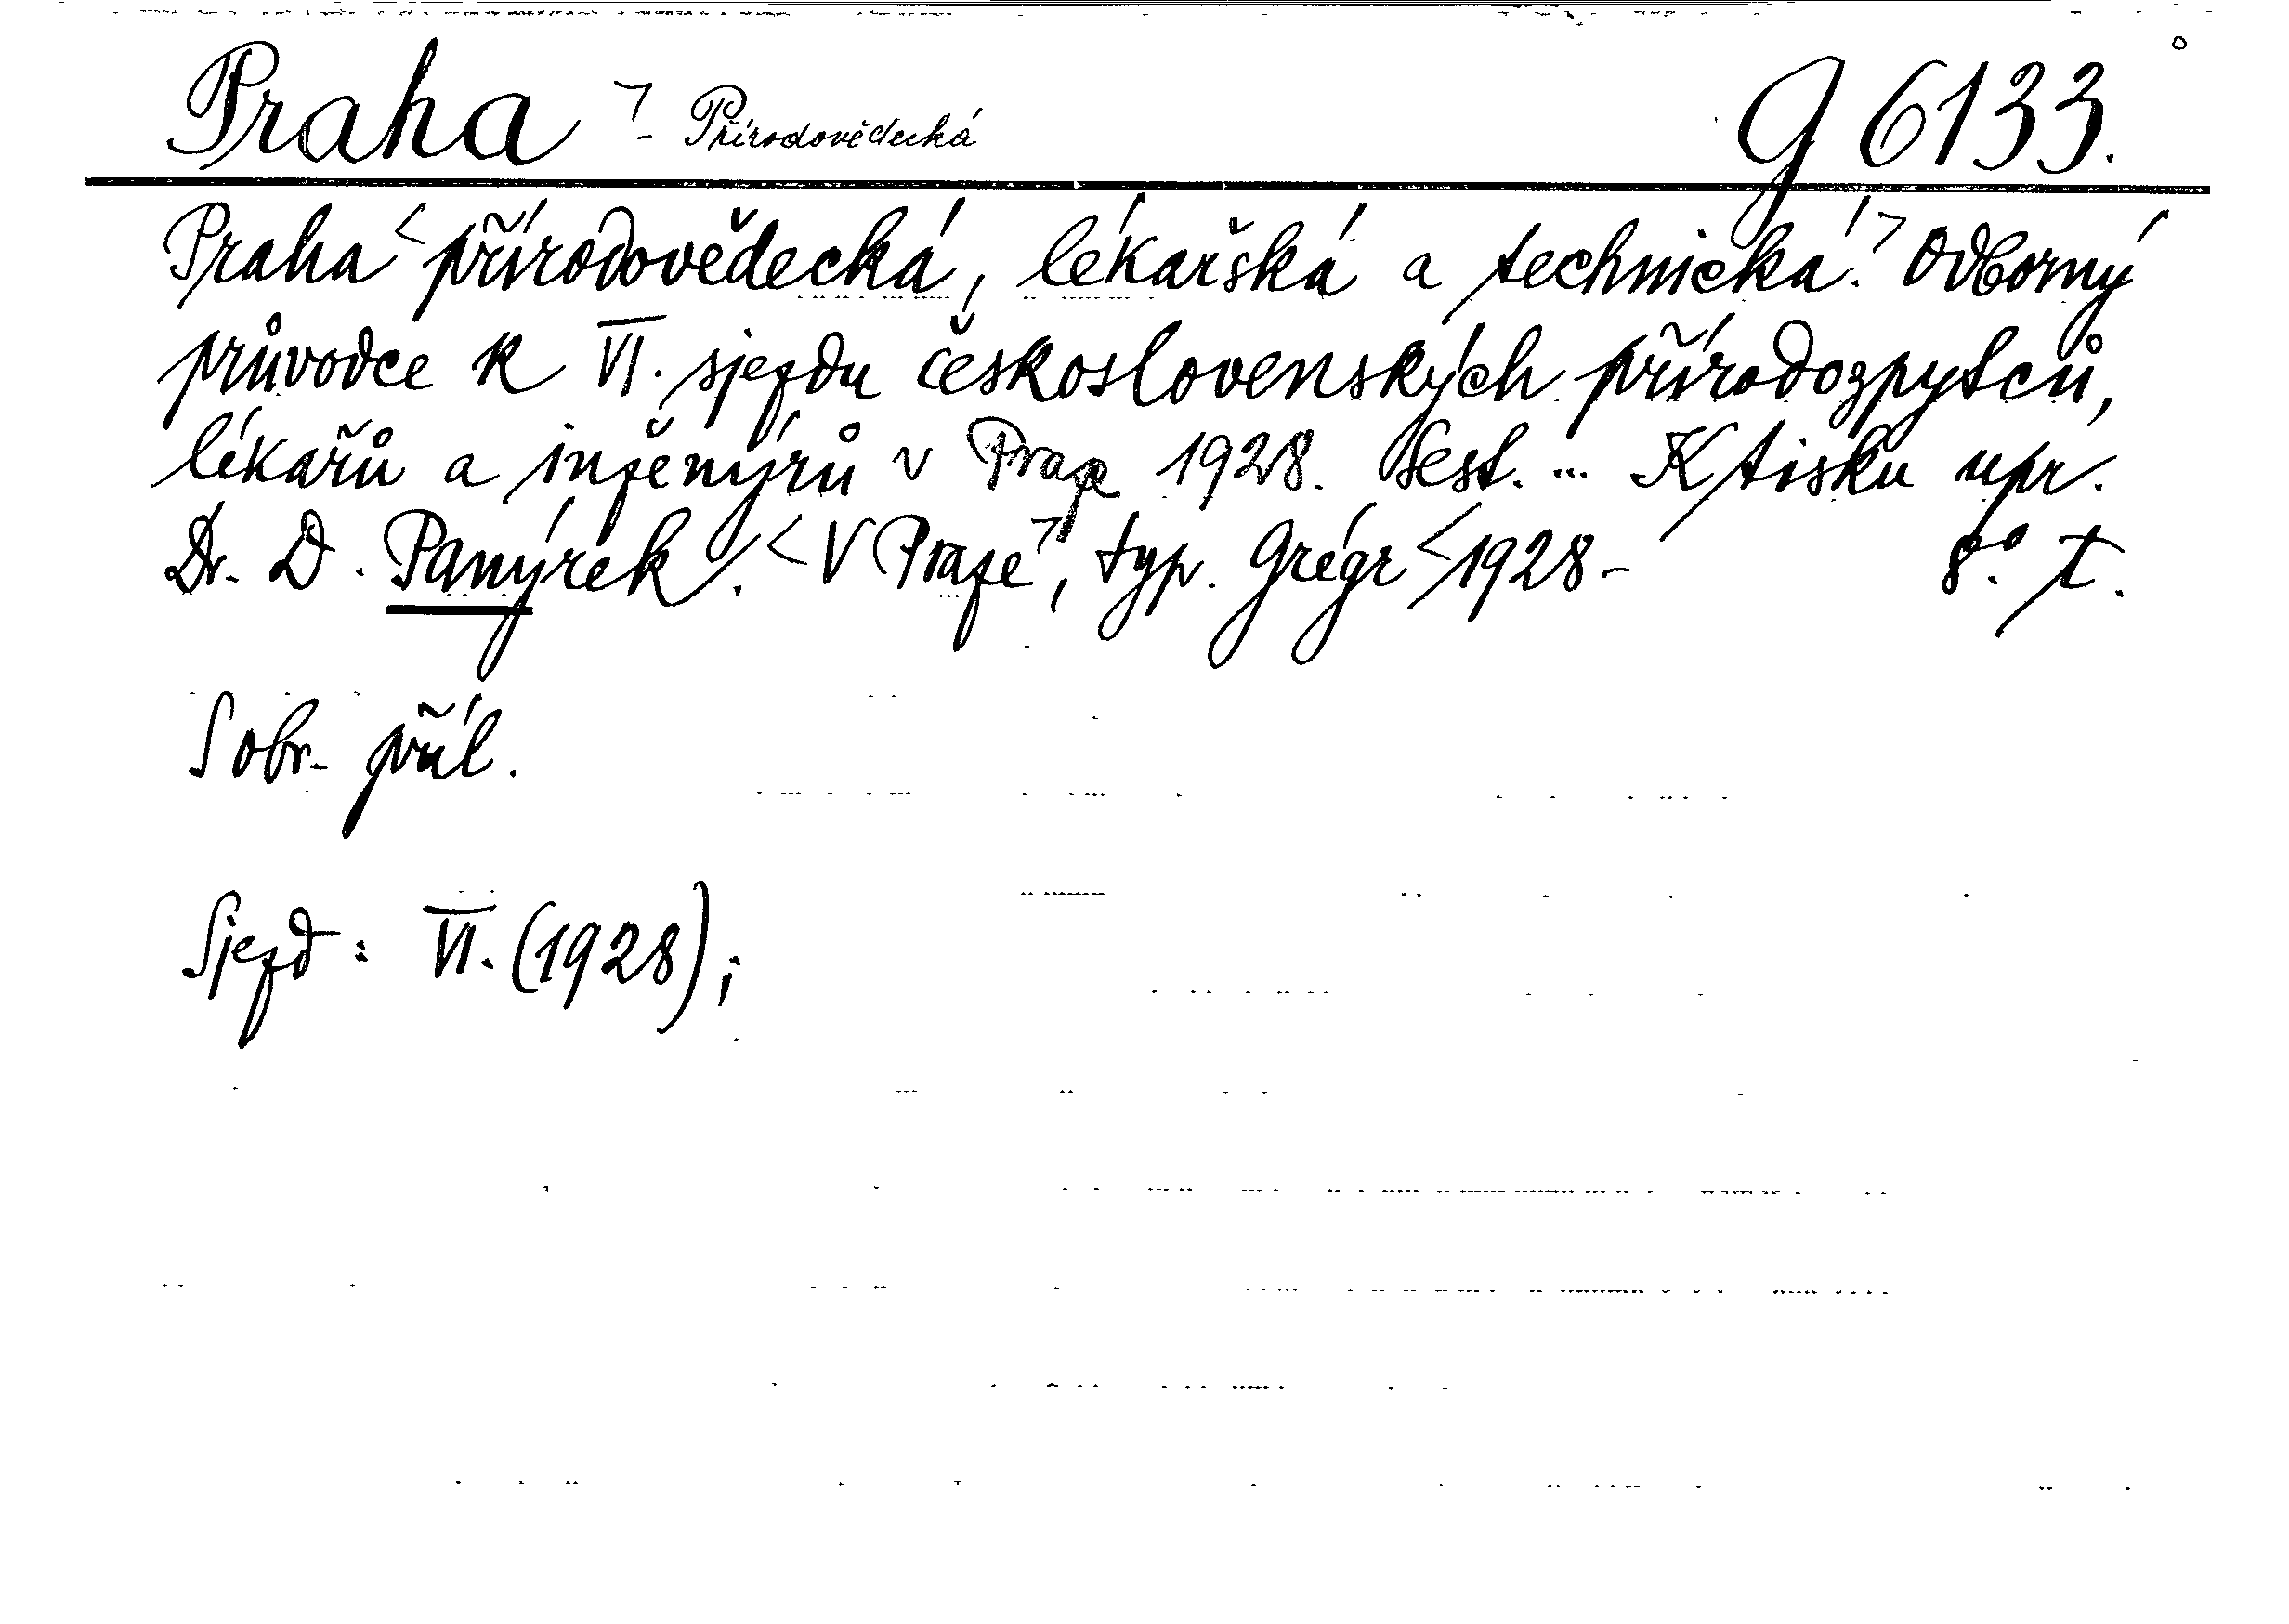 Praha ⁊ - Přírodovědecká g 6133.
Praha < přírodovědecká, lékařská a technická. ⁊ Odborný
průvodce k VI. sjezdu československých přírodozpytců,
lékařů a inženýrů v Praze 1928. Sest. ... K tisku upr.
Dr. D. Panýrek. < V Praze ⁊, typ. Grégr < 1928 - 8.° T.
S obr. příl.
Sjezd : VI. (1928) ;